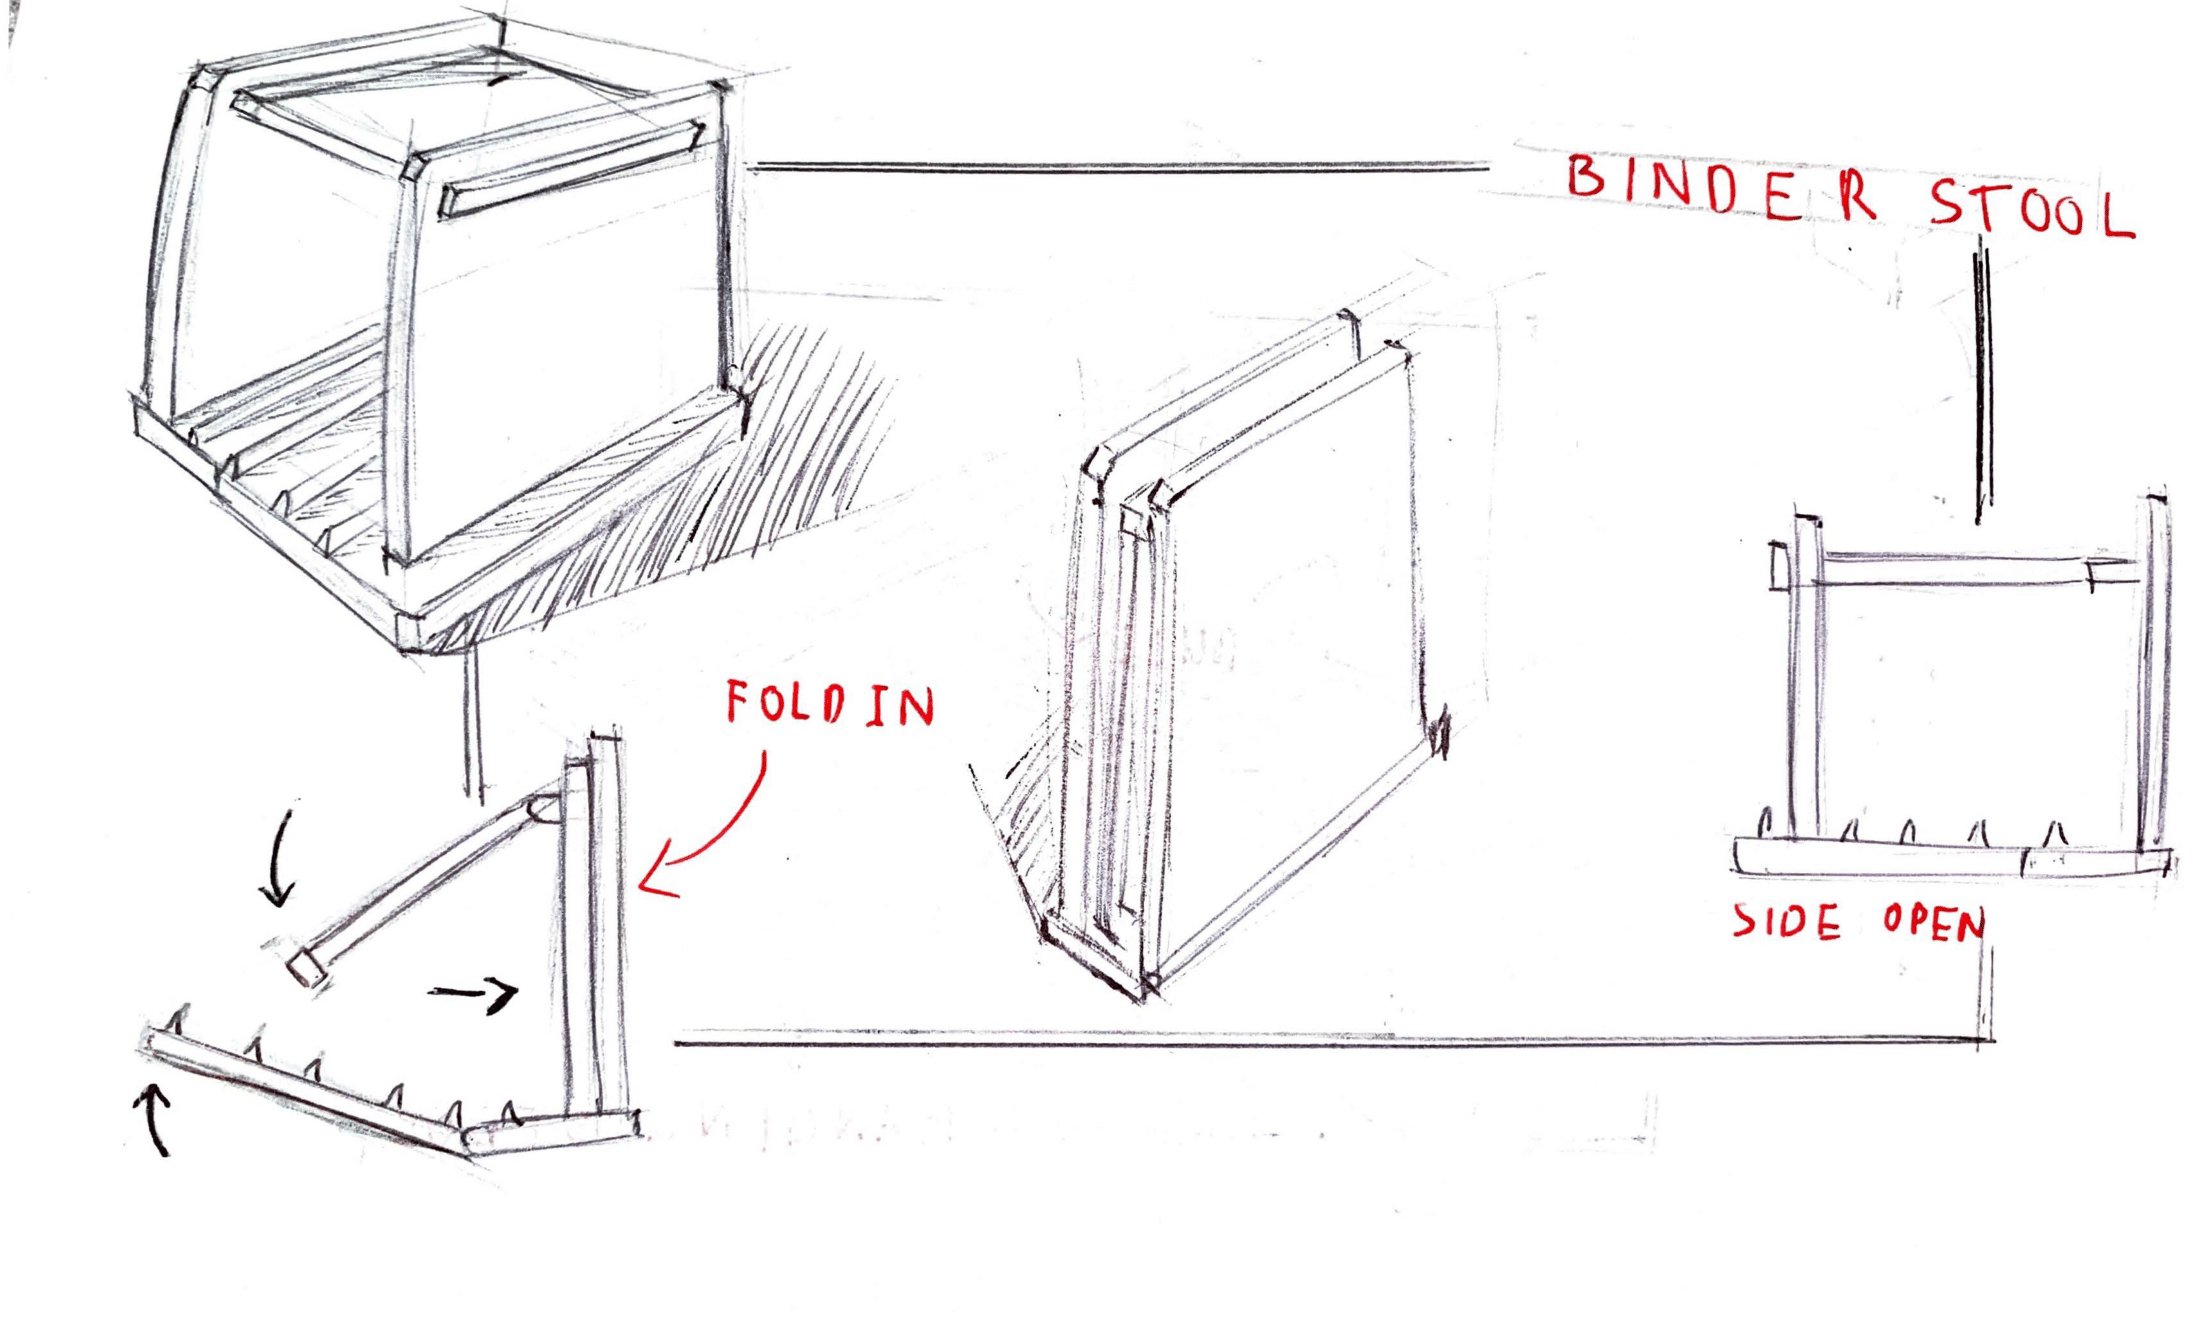 BINDER STOOL
FOLD IN
SIDE OPEN